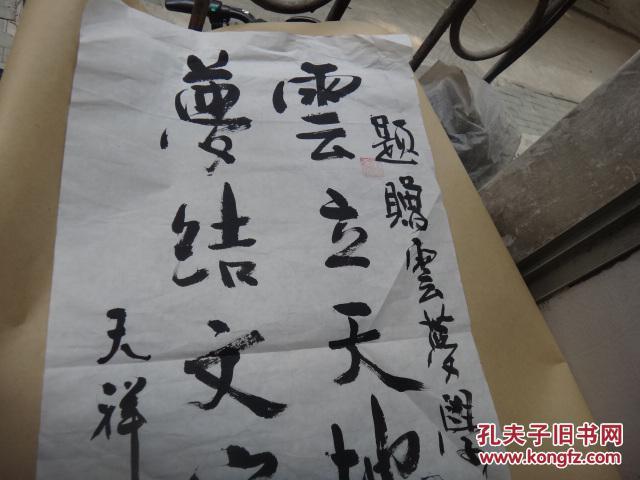 题赠雲夢學
雲立天地
夢结文
天祥
孔夫子旧书网
www.kongfz.com